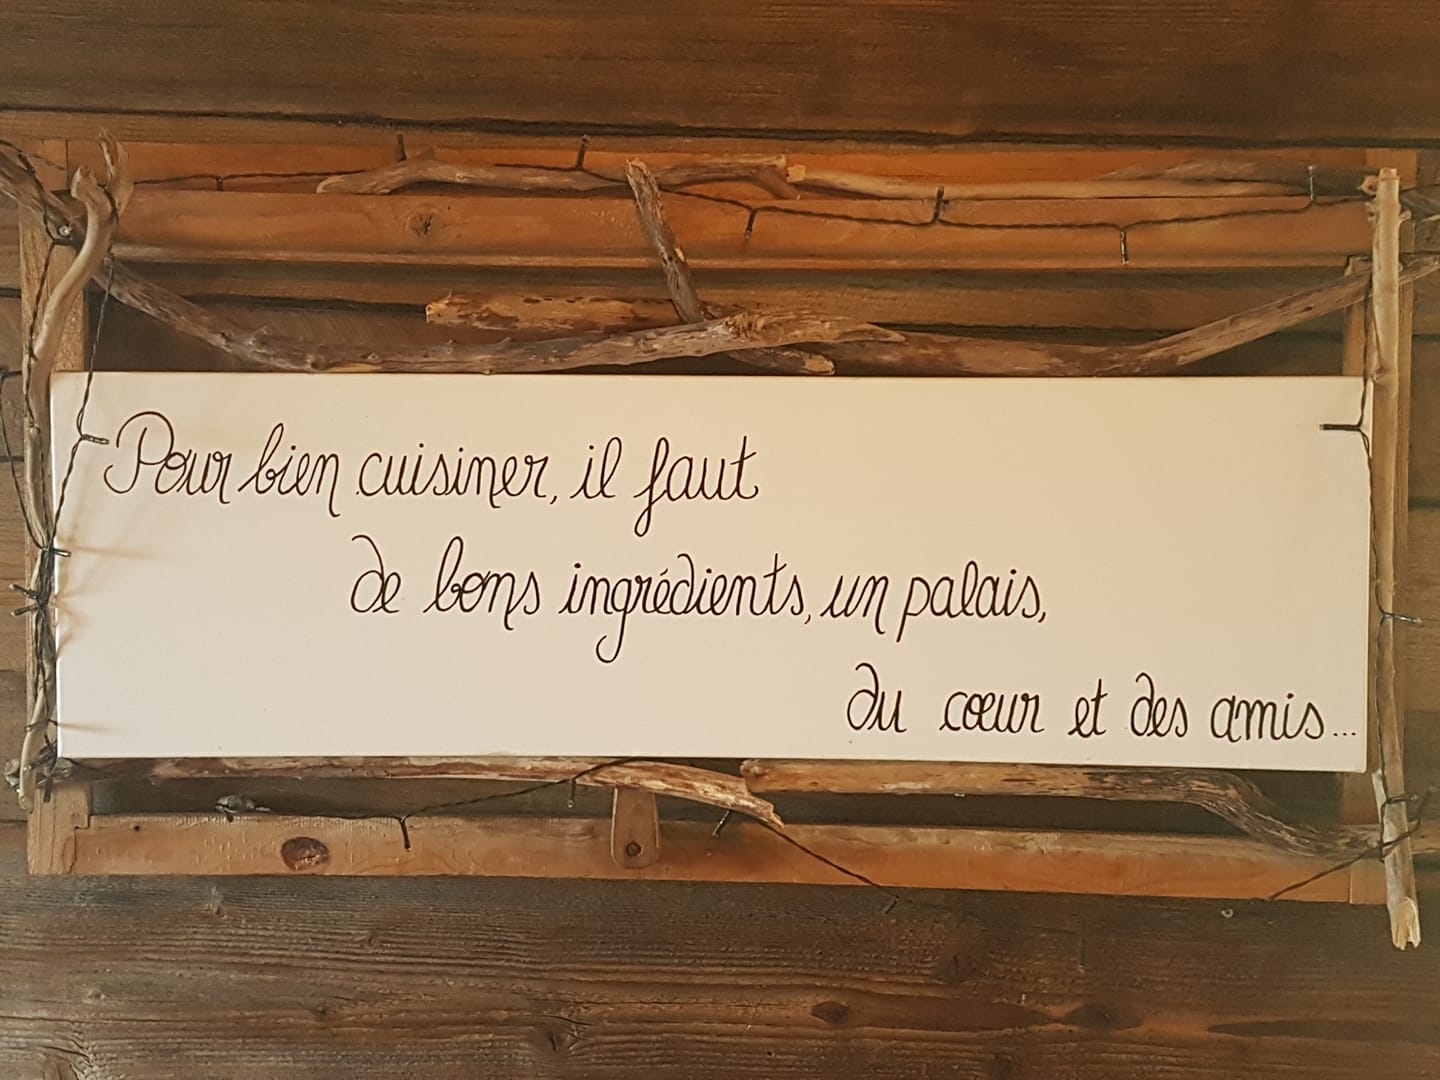 Pour bien cuisiner, il faut
de bons ingrédients, un palais,
du cœur et des amis...